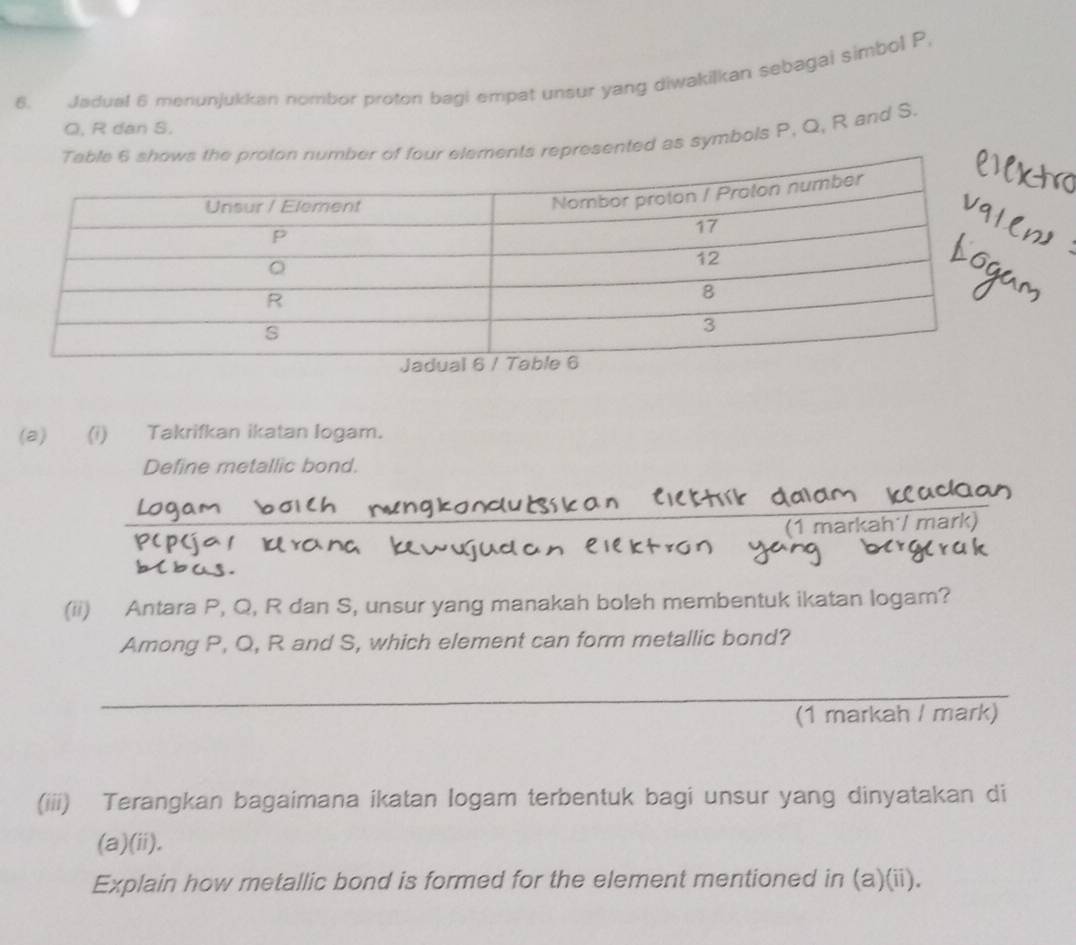 6. Jadual 6 menunjukkan nombor proton bagi empat unsur yang diwakilkan sebagai simbol P,
Q, R dan S.
Table 6 shows the proton number of four elements represented as symbols P, Q, R and S.
Unsur / Element Nombor proton / Proton number
P 17
Q 12
R 8
S 3
Jadual 6 / Table 6
elektro
valens :
Logam
(a) (i) Takrifkan ikatan logam.
Define metallic bond.
Logam boleh mengkondutsikan elektrik dalam keadaan
(1 markah / mark)
pepejal kerana kewujudan elektron yang bergerak
bebas.
(ii) Antara P, Q, R dan S, unsur yang manakah boleh membentuk ikatan logam?
Among P, Q, R and S, which element can form metallic bond?
(1 markah / mark)
(iii) Terangkan bagaimana ikatan logam terbentuk bagi unsur yang dinyatakan di
(a)(ii).
Explain how metallic bond is formed for the element mentioned in (a)(ii).